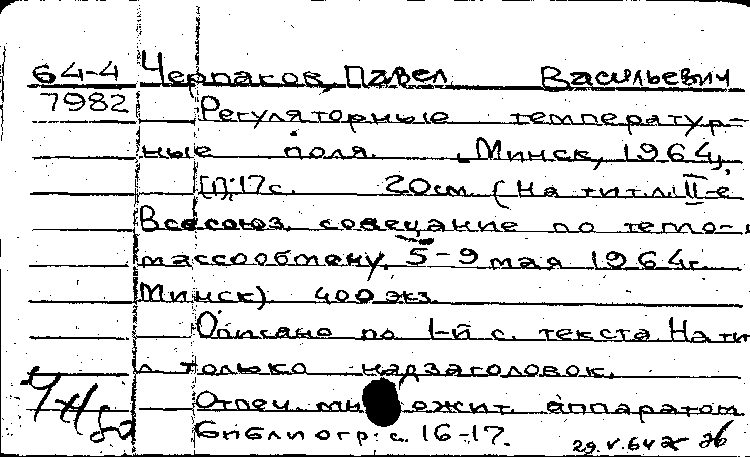 64-4 Черпаков, Павел Васильевич
7982 Регуляторные температур-
ные поля. Минск, 1964,
[1], 17с. 20см. (На тит.л.: II-е
Всесоюз. совещание по тепло-
массообмену. 5-9 мая 1964г.
Минск). 400 экз.
Описано по 1-й с. текста. На ти
л. только надзаголовок.
Отпеч. множит. аппаратом
Библиогр: с. 16-17.
29.V.64